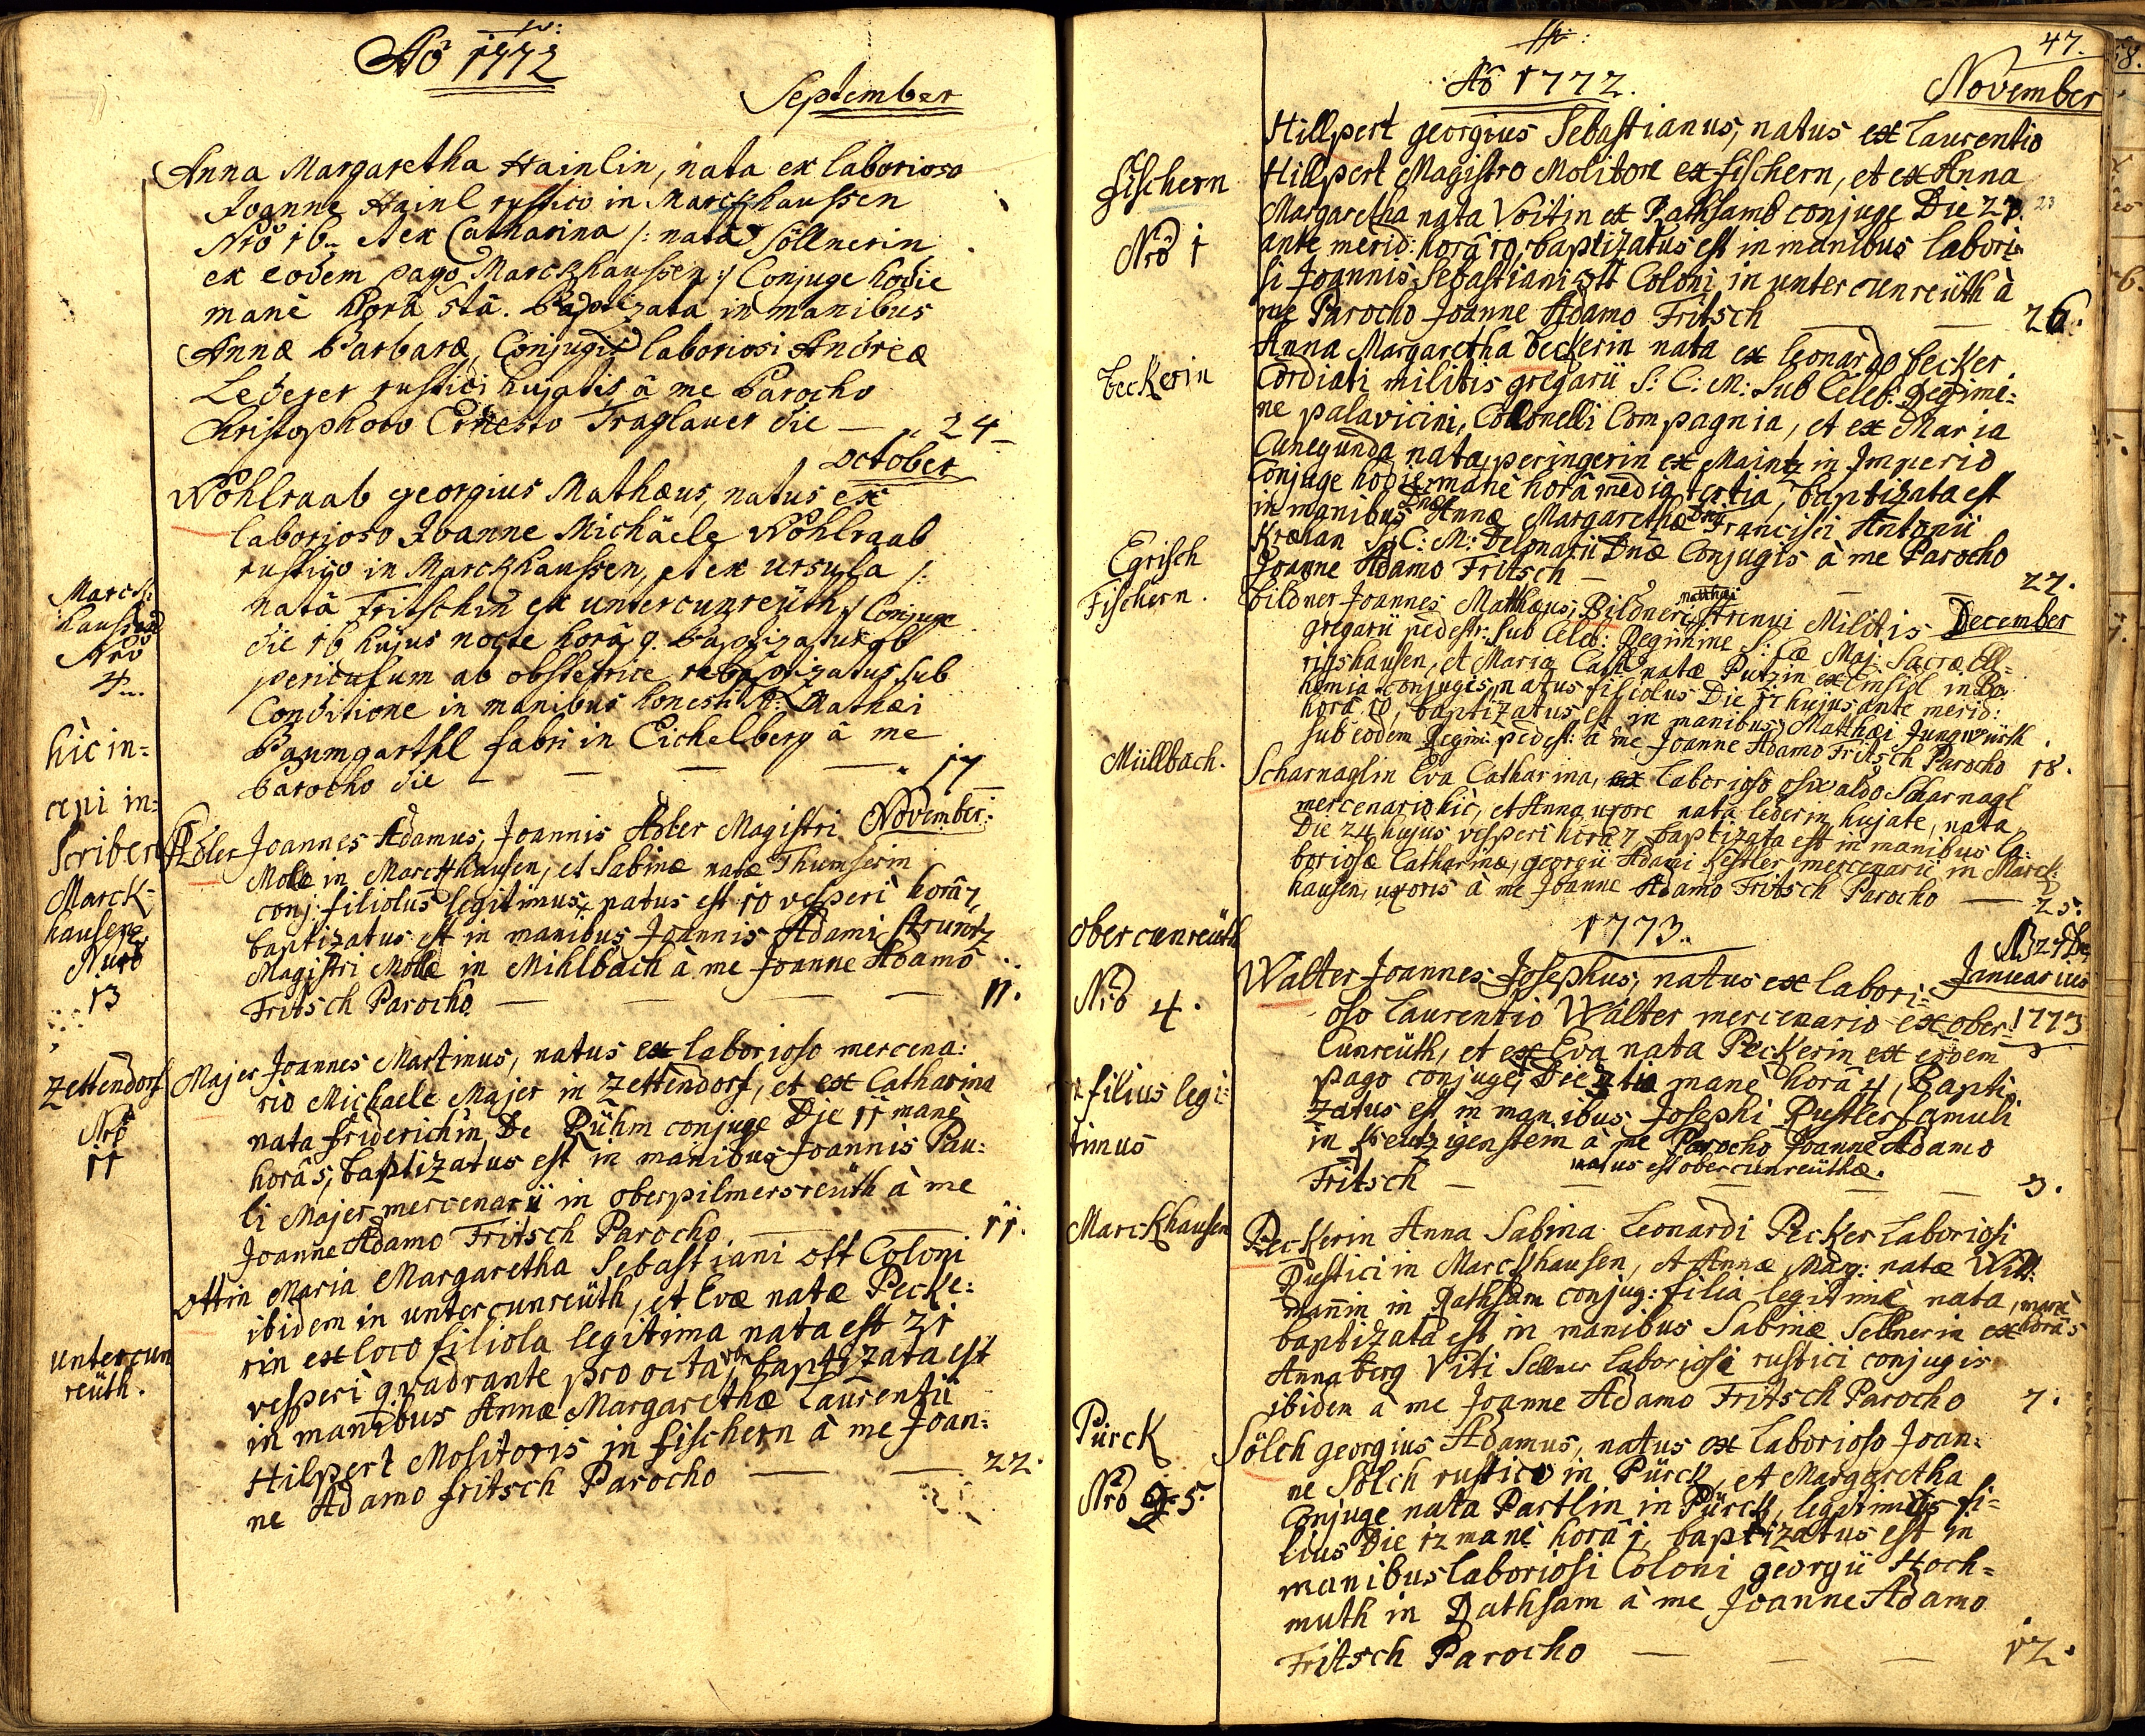 Aõ 1772
September
Anna Margaretha Hainlin, nata ex laborioso
Joanne Hainl rustico in Marckhaussen
Nrò 16. et ex Catharina /: nata Söllnerin
ex eodem pago Marckhaussen :/ Conjuge hodie
manè horâ 5tâ. Baptizata in manibus
Annæ Barbaræ, Conjugis laboriosi Andreæ
Lederer rustici hujatis, à me Parocho
Christophoro Ernesto Traglauer die — 24
October
Wohlraab georgius Mathæus, natus ex
laborioso Joanne Michäele Wohlraab
rustico in Marckhaussen, et ex Ursula /:
natâ Fritschin ex untercunreüth :/ Conjuge
die 16 hujus nocte horâ 9. Baptizatus ob
periculum ab obstetrice rebaptizatus sub
Conditione in manibus honesti Mathæi
Baumgarthl fabri in Eichelberg à me
Parocho die — — — 17
Marck:
haussen
Nrò
4
hìc in=
cepi in=
scribere
November:
Adler Joannes Adamus, Joannis Adler Magistri
Molæ in Marckhausen, et Sabinæ natæ Thumserin
conj: filiolus legitimus, natus est 10 vesperi horâ 7,
baptizatus est in manibus Joannis Adami Struntz
Magistri Molæ in Mihlbach à me Joanne Adamo
Fritsch Parocho — — — 11.
Marck-
hausen
Nrò
13
Majer Joannes Martinus, natus ex laborioso mercena:
rio Michaele Majer in Zettendorf, et ex Catharina
nata Friderichin De Pühm conjuge Die 11 manè
horâ 5, baptizatus est in manibus Joannis Pau:
li Majer mercenarii in oberpilmersreüth à me
Joanne Adamo Fritsch Parocho — — 11.
Zettendorf
Nrò
11
Ottin Maria Margaretha Sebastiani Ott Coloni
ibidem in untercunreüth, et Evæ natæ Pecke:
rin ex loco filiola legitima nata est 21
vesperi quadrante pro octava, baptizata est
in manibus Annæ Margarethæ Laurentii
Hilpert Molitoris in Fischern à me Joan:
ne Adamo Fritsch Parocho — — 22.
untercun
reüth.
47.
Aõ 1772.
November
Hillpert georgius Sebastianus, natus ex Laurentio
Hillpert Magistro Molitore ex Fischern, et ex Anna
Margaretha nata Voitin ex Rathsamb conjuge Die 23
ante merid: horâ 10, baptizatus est in manibus labori
si Joannis Sebastiani Ott Coloni in untercunreüth à
me Parocho Joanne Adamo Fritsch — — 26.
Fischern
Nrò 1
Anna Margaretha beckerin nata ex Leonardo becker
Cordiati militis gregarii S: C: M: sub Celeb: Regimi:
ne palavicini, Collonelli Compagnia, et ex Maria
Cunegunda nata peringerin ex Maintz in Imperio
Conjuge hodie manè horâ media tertia, baptizata est
in manibus Dnæ Annæ Margarethæ Dni Francisci Antonii
Kralan S: C: M: Dnæ Conjugis à me Parocho
Joanne Adamo Fritsch — — 27.
beckerin
Egrisch
Fischern.
December
bildner Joannes Matthæus, Bildneri Matthæi strenui Militis
gregarii pedestr: sub Celeb: Regimine S: Cæ Maj: Sacræ Ell=
richshausen, et Maria Cath: natæ Putzin ex Einsidl in Bo
hemia conjugis, natus filiolus Die 17 hujus ante merid:
horâ 10, baptizatus est in manibus Matthæi Jungwürth
sub eodem Regim: pedest: à me Joanne Adamo Fritsch Parocho 18.
Scharnaglin Eva Catharina, ex laborioso oswaldo Scharnagl
mercenario hìc, et Anna uxore nata lederin hujate, nata
Die 24 hujus vesperi horâ 7, baptizata est in manibus la:
boriosæ Catharinæ, georgii Adami Kestler mercenarii in Marck:
hausen, uxoris à me Joanne Adamo Fritsch Parocho — 25.
Müllbach.
1773.
Januarius
1773
Walter Joannes Josephus, natus ex labori:
oso Laurentio Walter mercenario ex ober:
Cunreüth, et ex Eva nata Peckerin ex eodem
pago conjuge, Die 3tia manè horâ 4, Bapti
zatus est in manibus Josephi Pustler famuli
in Kreutzigenstein à me Parocho Joanne Adamo
natus est obercunreüthæ.
Fritsch — — — 3.
obercunreüth
Nrò 4.
filius legi:
timus
Peckerin Anna Sabina Leonardi Pecker Laboriosi
Rustici in Marckhausen, et Annæ Marg: natæ Witt:
mañin in Rathsam conjug: filia legitimè nata, manè
horâ 5
baptizata est in manibus Sabinæ Sellnerin ex
Annaberg Viti Sellner Laboriosi rustici conjugis
ibidem à me Joanne Adamo Fritsch Parocho 7.
Marckhausen
Sölch georgius Adamus, natus ex Laborioso Joan:
ne Sölch rustico in Pürck, et Margaretha
Conjuge nata Partlin in Pürck, legitimus fi=
lius Die 12 manè horâ 1, baptizatus est in
manibus laboriosi Coloni georgii Hoch=
muth in Rathsam à me Joanne Adamo
Fritsch Parocho — — — 12.
Pürck
Nrò 5.